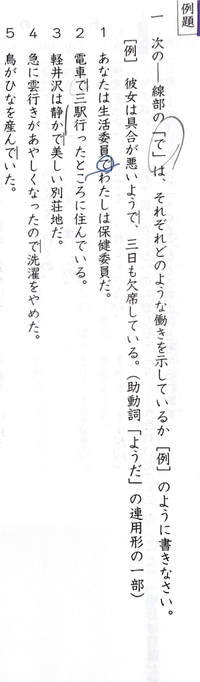 例題
一 次の―線部の「で」は、それぞれどのような働きを示しているか［例］のように書きなさい。
［例］ 彼女は具合が悪いようで、三日も欠席している。（助動詞「ようだ」の連用形の一部）
1 あなたは生活委員でわたしは保健委員だ。
2 電車で三駅行ったところに住んでいる。
3 軽井沢は静かで美しい別荘地だ。
4 急に雲行きがあやしくなったので洗濯をやめた。
5 鳥がひなを産んでいた。